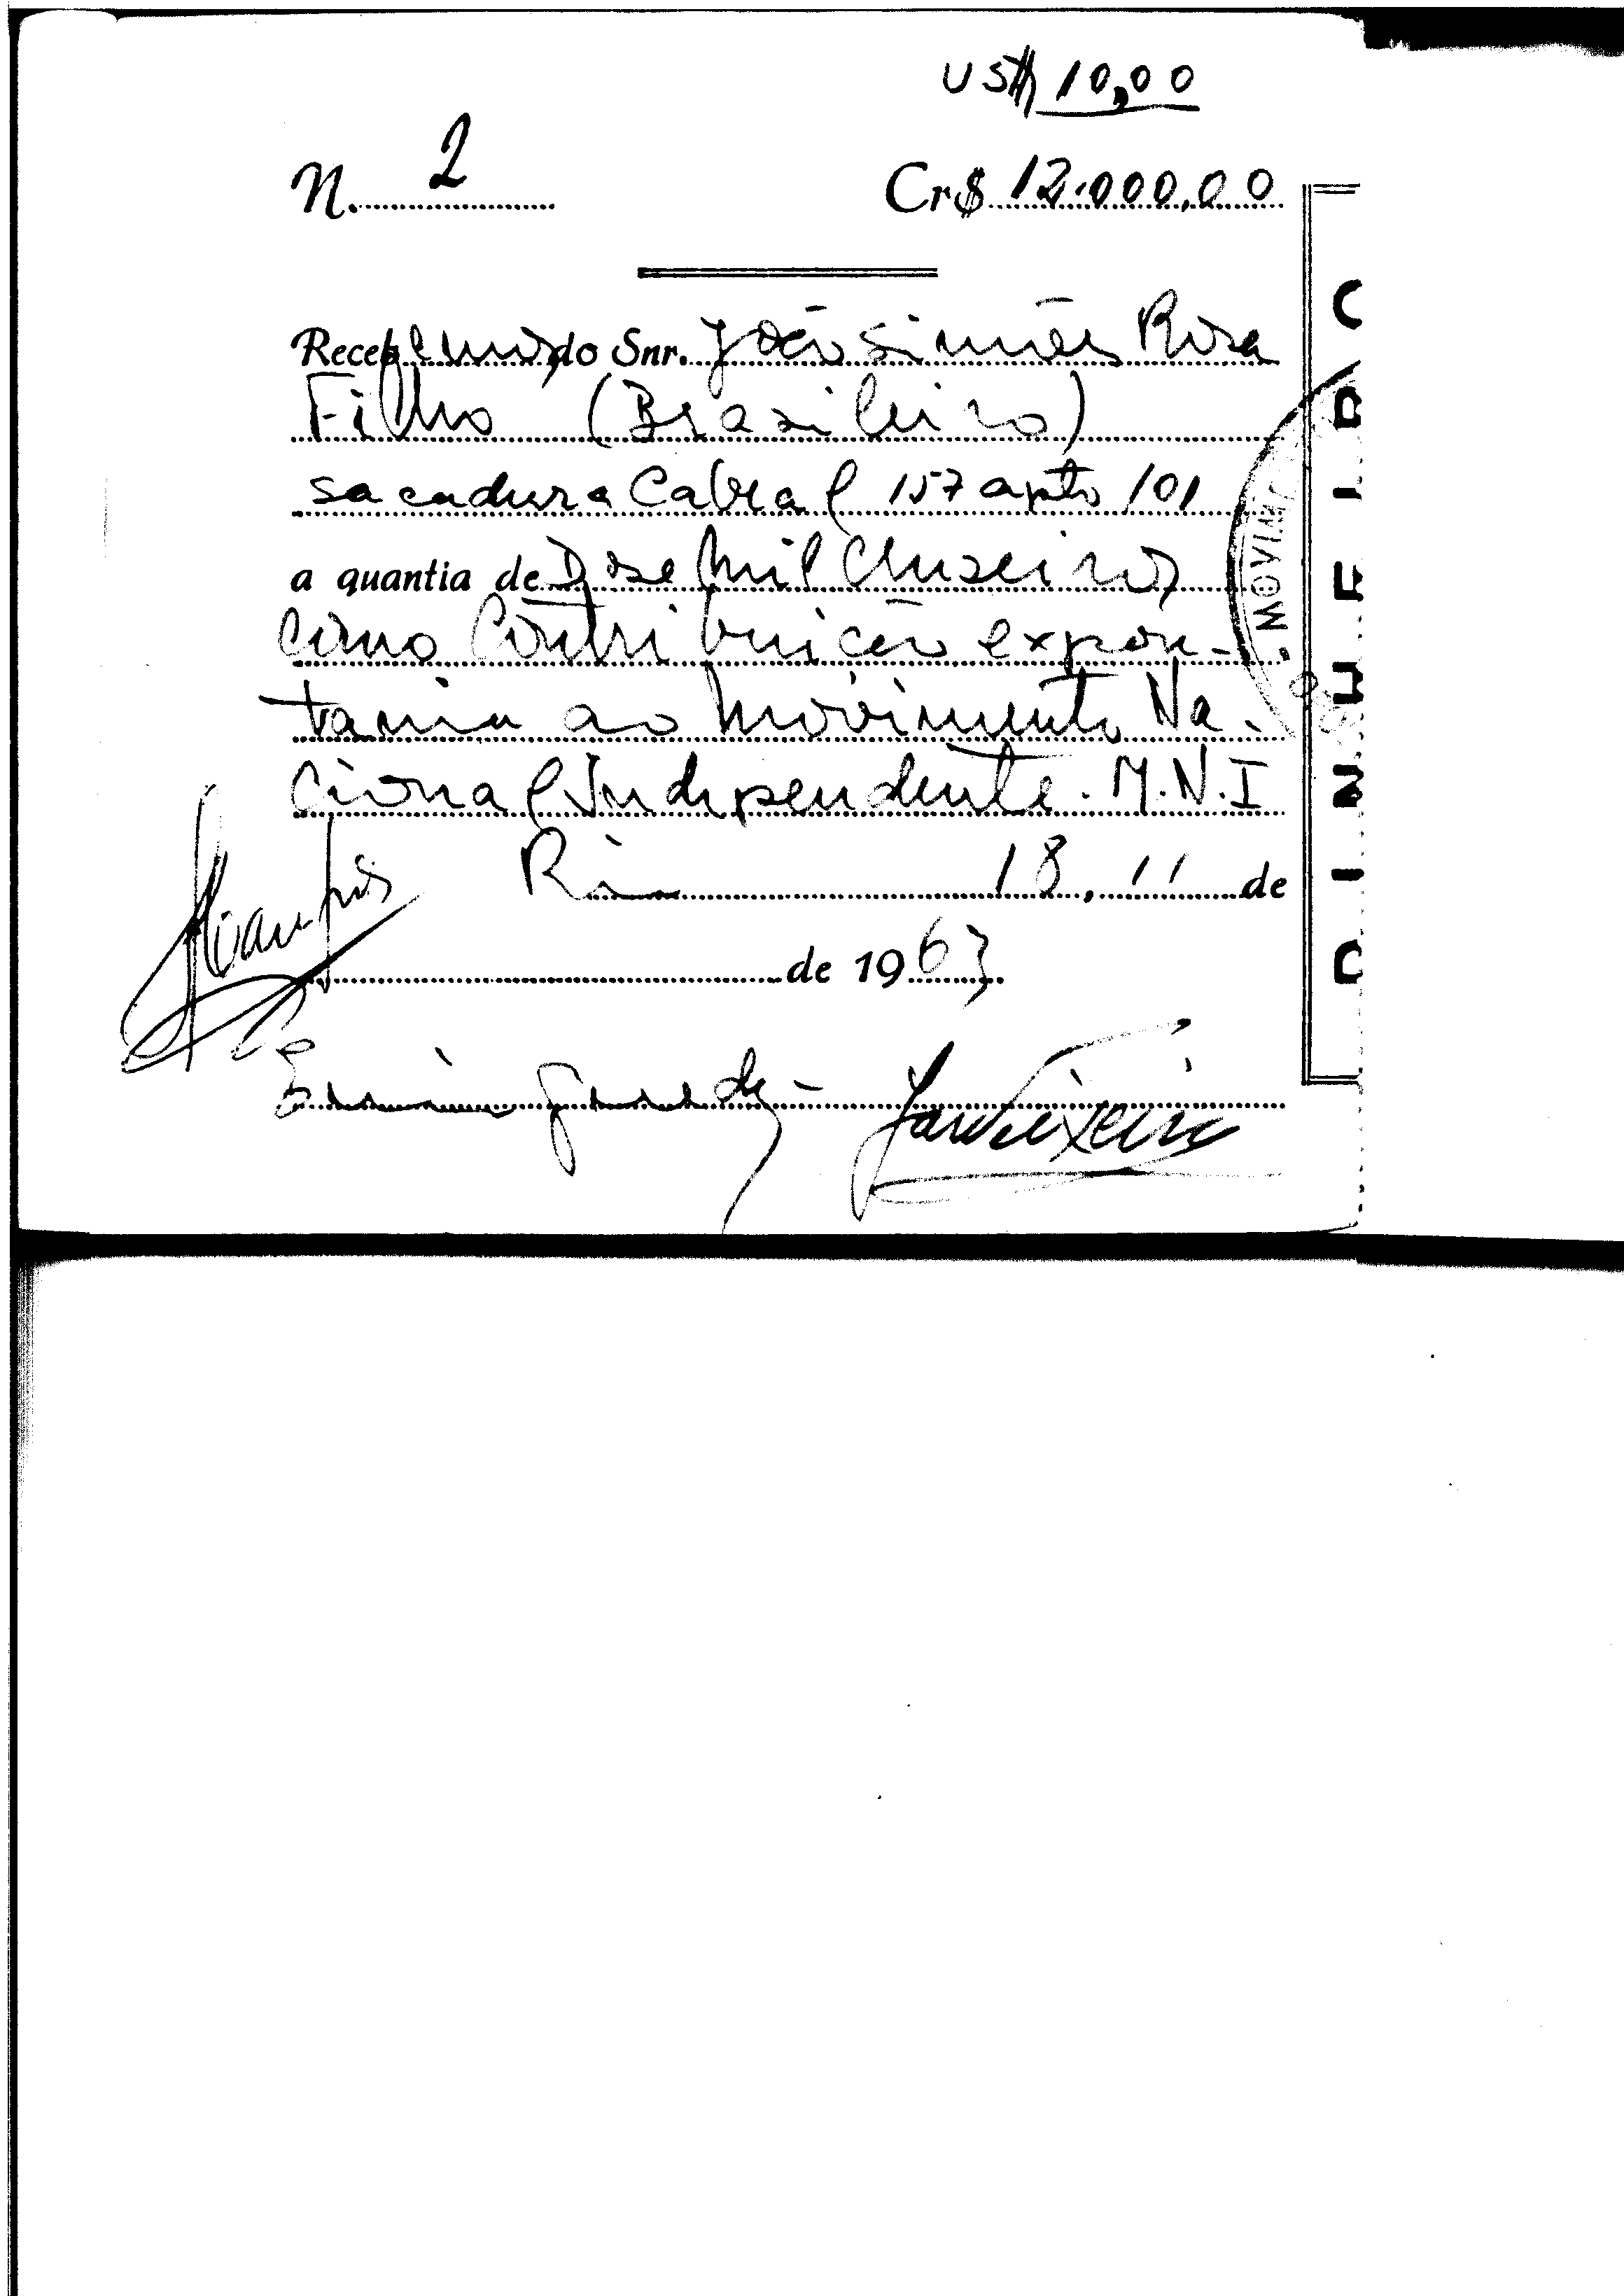 US$ 10,00
N. 2 Cr$ 12.000,00
Recebemos do Snr. João Simões Rosa
Filho (Brasileiro)
sacadura Cabral 157 apto 101
a quantia de Dose Mil Cruseiros
como Contribuição expon-
tania ao Movimento Na-
cional Independente. M.N.I
Rio 18, 11 de
de 1963
Teixeira
MOVIM